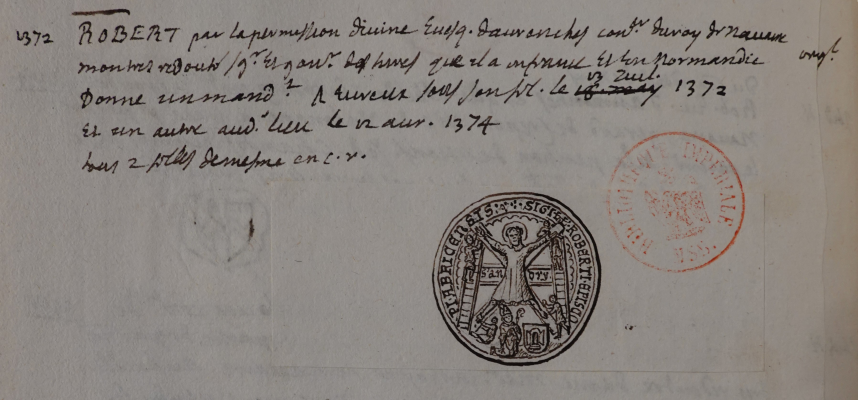 1372 ROBERT par la permission divine Evesq. d'avranches con.er du roy de Navarre
mon tres redouté sg.r Et gouv.r des terres que il a en france Et En Normandie orig.l
Donne un mand.t A Evreux sous son scel. le 13 Juil. 1372
Et un autre aud. lieu le 12 avr. 1374
tous 2 scellés de mesme en c. r.
SIGILL ROBERTI EPISCOPI ABRICENSIS
San dry
BIBLIOTHEQUE IMPERIALE MSS.